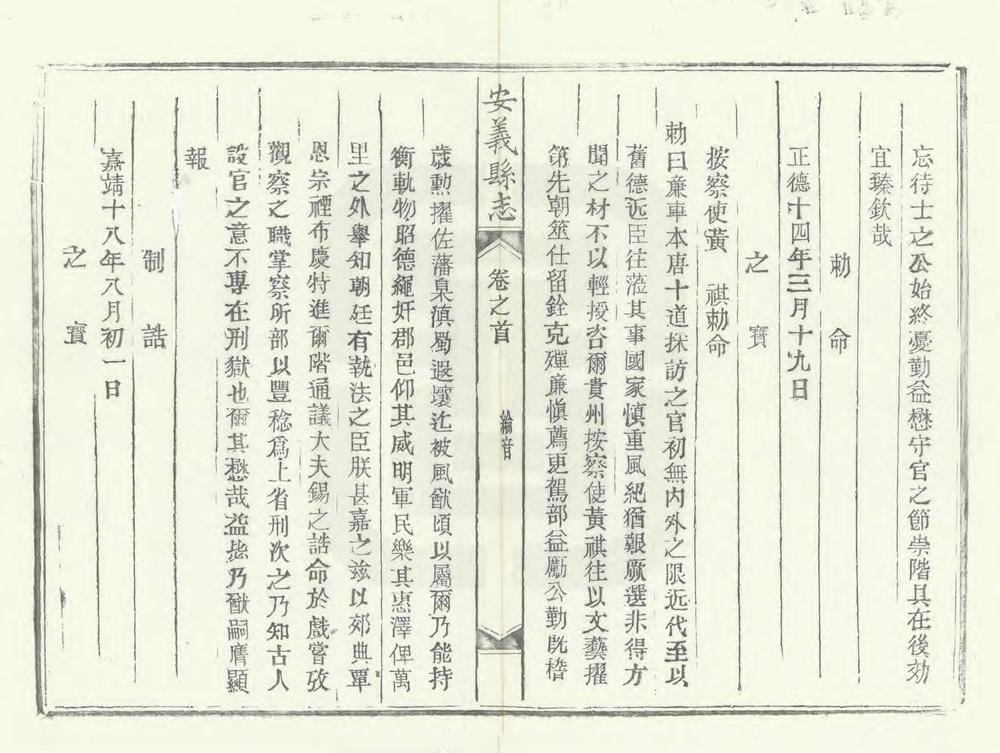 忘待士之公始終憂勤益懋守官之節崇階具在後効
宜臻欽哉
勅命
正德十四年三月十九日
之寶
按察使黃 祺勅命
勅曰亷車本唐十道採訪之官初無内外之限近代至以
舊德近臣往蒞其事國家慎重風紀猶艱厥選非得方
聞之材不以輕授咨爾貴州按察使黃祺往以文藝擢
第先朝筮仕留銓克殫廉愼薦更駕部益勵公勤旣楙
安義縣志 卷之首 綸音
歲勲擢佐藩臬滇蜀遐壤迄被風猷頃以屬爾乃能持
衡軌物昭德繩奸郡邑仰其威明軍民樂其惠澤俾萬
里之外舉知朝廷有執法之臣朕甚嘉之兹以郊典覃
恩宗禋布慶特進爾階通議大夫錫之誥命於戲嘗攷
觀察之職掌察所部以豐稔爲上省刑次之乃知古人
設官之意不專在刑獄也爾其懋哉益毖乃猷嗣膺顯
報
制誥
嘉靖十八年八月初一日
之寶